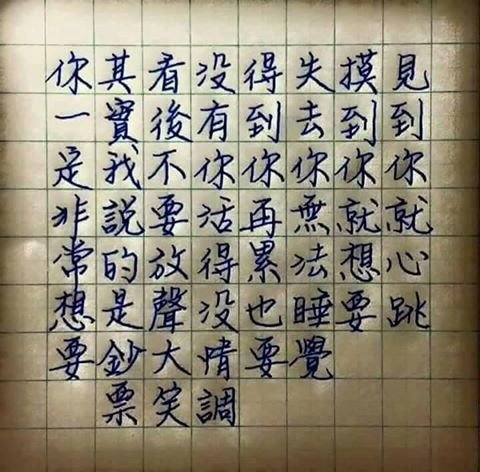 見到你就心跳
摸到你就想要
失去你無法睡覺
得到你再累也要
没有你活得没情調
看後不要放聲大笑
其實我說的是鈔票
你一定非常想要